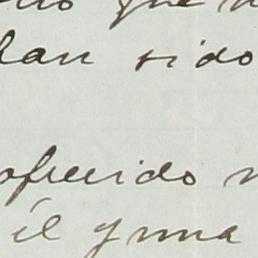 que
han sido
ofrecido
él y una